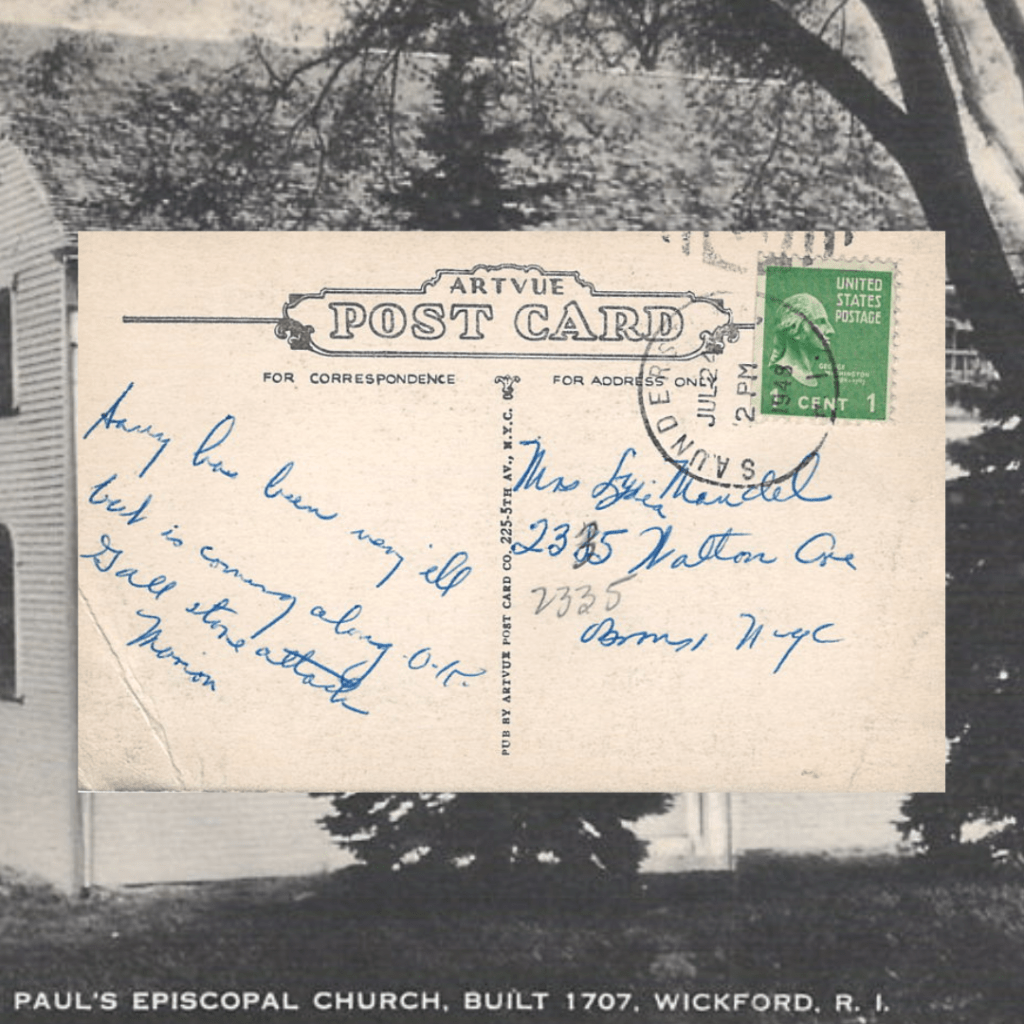 ARTVUE
POST CARD
FOR CORRESPONDENCE
FOR ADDRESS ONLY
UNITED
STATES
POSTAGE
GEORGE
WASHINGTON
1 CENT 1
SAUNDERS
JUL 24
2 PM
1948
Harry has been very ill
but is coming along O-K.
Gall stone attack
Marion
PUB BY ARTVUE POST CARD CO. 225-5TH AV., N.Y.C.
Mrs Lydia Mandel
2335 Walton Ave
2335
Bronx NYC
PAUL'S EPISCOPAL CHURCH, BUILT 1707, WICKFORD, R. I.